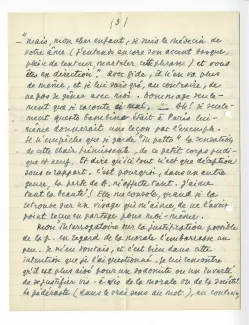 (3)
"mais, mon cher enfant, je suis le médecin de
votre âme (j'entends encore son accent
de conteur, cette phrase) et vous
êtes en direction". Avec Gide, il n'en va plus
de même, et je lui sais gré, au contraire, de
ne pas se gêner avec moi. Dommage seule-
ment que je raconte si mal. — Ah! si seule-
ment votre bambino était à Paris lui-
même donnerait une leçon par l'exemple.
Je n'empêche que je garde "in petto" la sensation
de cette chair de ce petit corps
et neuf. Et dire qu'ici tout n'est que déception
sous ce rapport. C'est pourquoi, dans un autre
genre, la perte de B. m'affecte tant. J'aime
tant la beauté! Elle me console, quand je la
retrouve sur un visage qui m'aime, de ne l'avoir
point reçue en partage pour moi-même.
Mon interrogatoire sur la justification possible
de la p. en regard de la morale l'embarrasse un
peu. Je m'en doutais, et c'est bien dans cette
intention que je l'ai questionné. Je lui montre
qu'il est plus aisé pour un sodomite ou un inverti
de se justifier vis-à-vis de la morale ou de la société
de pédéraste (dans le vrai sens du mot), au contraire